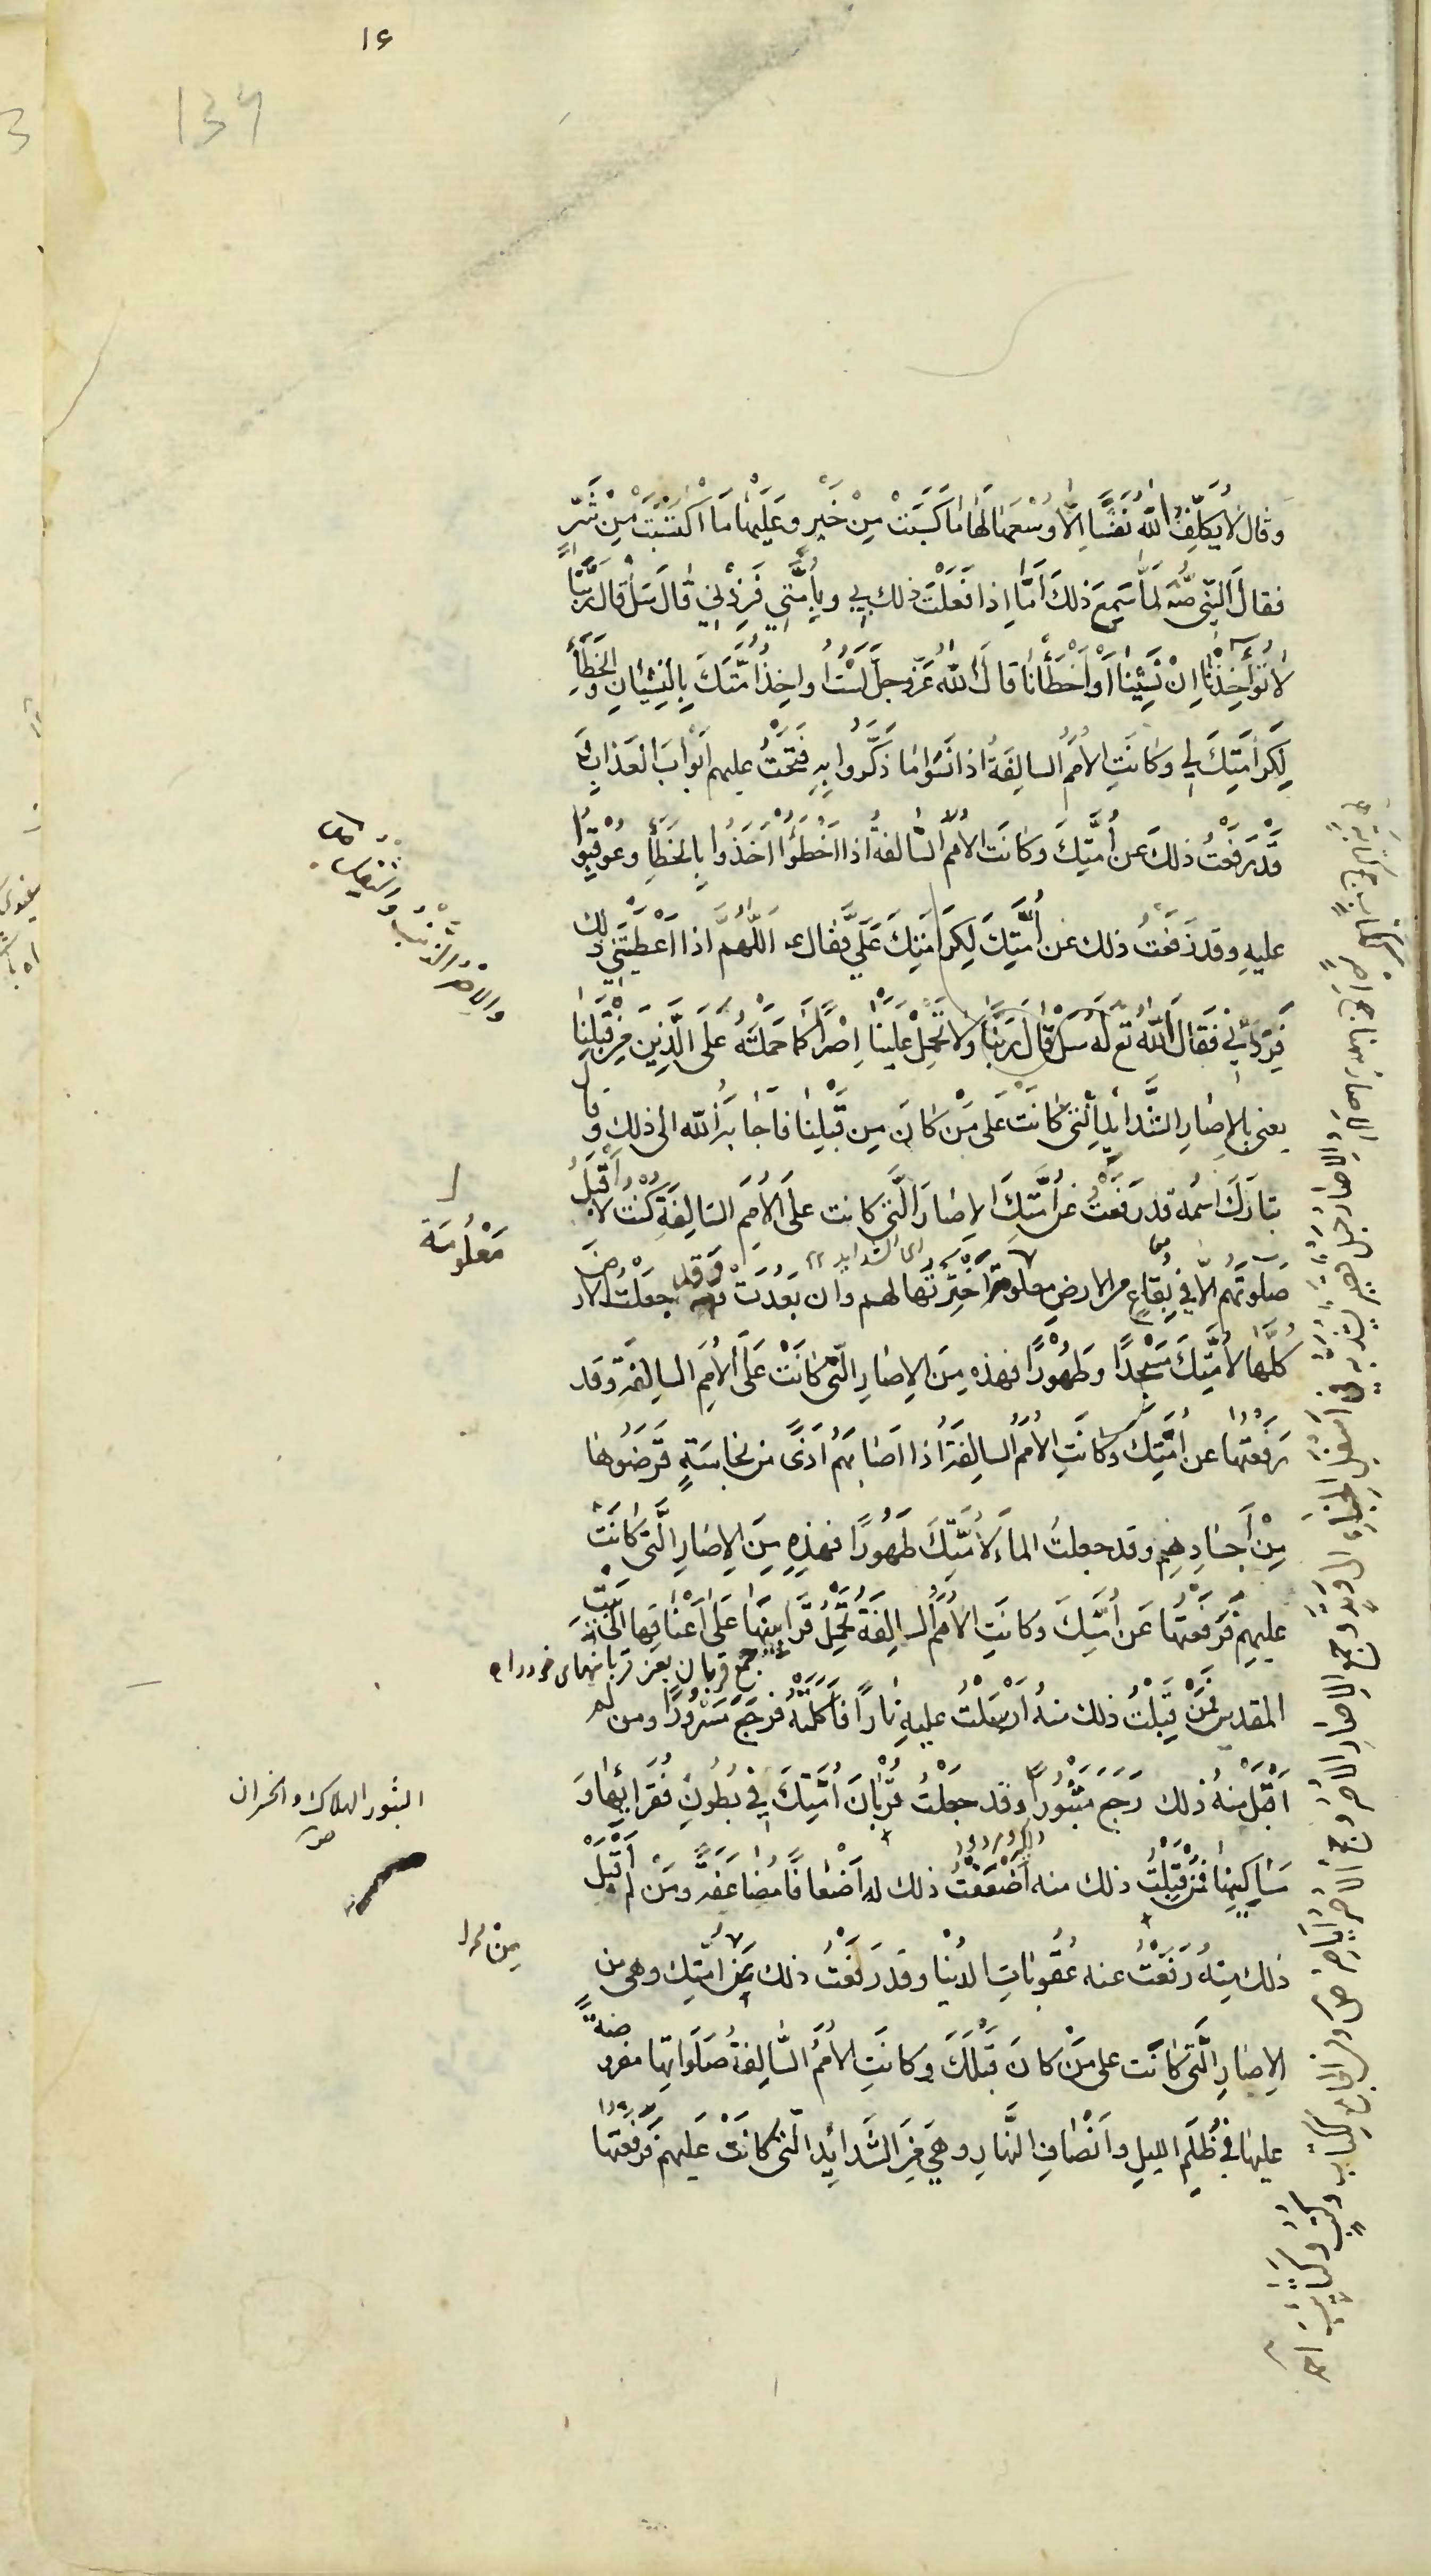 ۱۶
134
وقال لَا يُكَلِّفُ اللّٰهُ نَفْسًا اِلَّا وُسْعَهَا لَهَا مَا كَسَبَتْ مِنْ خَيْرٍ وَعَلَيْهَا مَا اكْتَسَبَتْ مِنْ شَرٍّ
فقالَ النَّبِي صلّه لَمَّا سَمِعَ ذٰلِكَ اَمَّا اِذَا فَعَلْتَ ذٰلِكَ بِي وَبِاُمَّتِي فَزِدْنِي قَالَ سَلْ قَالَ رَبَّنَا
لَا تُؤَاخِذْنَا اِنْ نَسِيْنَا اَوْ اَخْطَأْنَا قالَ اللّٰهُ عَزَّ وَجَلَّ لَسْتُ اُواخِذُ اُمَّتَكَ بِالنِّسْيَانِ والخَطَأِ
لِكَرامَتِكَ لِي وَكَانَتِ الْاُمَمُ السالِفَةُ اذا نَسُوا مَا ذُكِّرُوا بِهِ فَتَحْتُ عليهم اَبْوابَ الْعَذابِ
قَدْ رَفَعْتُ ذٰلِكَ عَنْ اُمَّتِكَ وَكَانَتِ الْاُمَمُ السَّالفةُ اذا اَخْطَؤُا اُخِذُوا بِالخَطَأِ وَعُوقِبُوا
عليهِ وقد رَفَعْتُ ذلك عَنْ اُمَّتِكَ لِكَرَامَتِكَ عَلَيَّ فقال ع اَللّٰهُمَّ اذا اَعْطَيْتَنِي ذلك
فَزِدْنِي فَقَالَ اللّٰهُ تع لَهُ سَلْ قَالَ رَبَّنَا وَلَا تَحْمِلْ عَلَيْنَا اِصْرًا كَمَا حَمَلْتَهُ عَلَى الَّذِينَ مِنْ قَبْلِنَا
يعني بالاِصَارِ الشَّدائدَ الَّتِي كَانَتْ عَلى مَنْ كانَ مِنْ قَبْلِنَا فَاَجَابَهُ اللّٰه الى ذٰلِكَ وقال
تَبَارَكَ اسْمُهُ قد رَفَعْتُ عَنْ اُمَّتِكَ الاِصَارَ الَّتِي كانت عَلَى الْاُمَمِ السَّالِفَةِ كُنْتُ لَا اَقْبَلُ
صَلٰوتَهُم اِلَّا فِي بِقَاعٍ من الارضِ معلومة اخْتَرْتُهَا لهم وان بَعُدَتْ وَقَد جَعَلْتُ الارضَ
اى الشدايد
مَعْلُومَة
كُلَّهَا لِاُمَّتِكَ مَسْجِدًا وَطَهُوْرًا فهذه مِنَ الاِصَارِ الَّتِي كَانَتْ عَلَى الْاُمَمِ السالِفَةِ وَقَد
رَفَعْتُهَا عن اُمَّتِكَ وَكَانَتِ الْاُمَمُ السالِفَةُ اذا اَصَابَهُمْ اَذًى من نجاسَةٍ قَرَضُوهَا
مِنْ اَجْسَادِهِم وَقَد جعلتُ الماءَ لِاُمَّتِكَ طَهُورًا فهٰذِهِ مِنَ الاِصَارِ الَّتِي كَانَتْ
عليهِم فَرَفَعْتُهَا عَنْ اُمَّتِكَ وَكَانَتِ الْاُمَمُ السالِفَةُ تَحْمِلُ قَرَابِينَهَا عَلَى اَعْنَاقِهَا اِلَى بَيْتِ
جمع قربان يعنى قربانيهاى خود را
المقدس فَمَنْ قَبِلْتُ ذلك منهُ اَرْسَلْتُ عليهِ نَارًا فَاَكَلَتْهُ فَرَجَعَ مَسْرُورًا ومن لم
اَقْبَلْ مِنْهُ ذٰلِكَ رَجَعَ مَثْبُورًا وَقَد جَعَلْتُ قُرْبَانَ اُمَّتِكَ فِي بُطُونِ فُقَرَائِهَا وَ
الثبور الهلاك و الخسران
ص
مَسَاكِينِهَا فَمَنْ قَبِلْتُ ذلك منه اَضْعَفْتُ ذلك له اَضْعَافًا مُضَاعَفَةً وَمَنْ لَمْ اَقْبَلْ
ذلك مِنْهُ رَفَعْتُ عنه عُقُوبَاتِ الدُّنْيَا وَقَد رَفَعْتُ ذلك عَنْ اُمَّتِك وهي من
الاِصَارِ الَّتِي كَانَت على مَنْ كانَ قَبْلَكَ وَكانَتِ الْاُمَمُ السَّالِفَةُ صَلَوَاتُهَا مفروضةً
عليها فِي ظُلَمِ الليلِ وَاَنْصَافِ النَّهَارِ وَهِيَ مِنَ الشَّدائِدِ الَّتِي كَانَتْ عَلَيهِم فَرَفَعْتُهَا